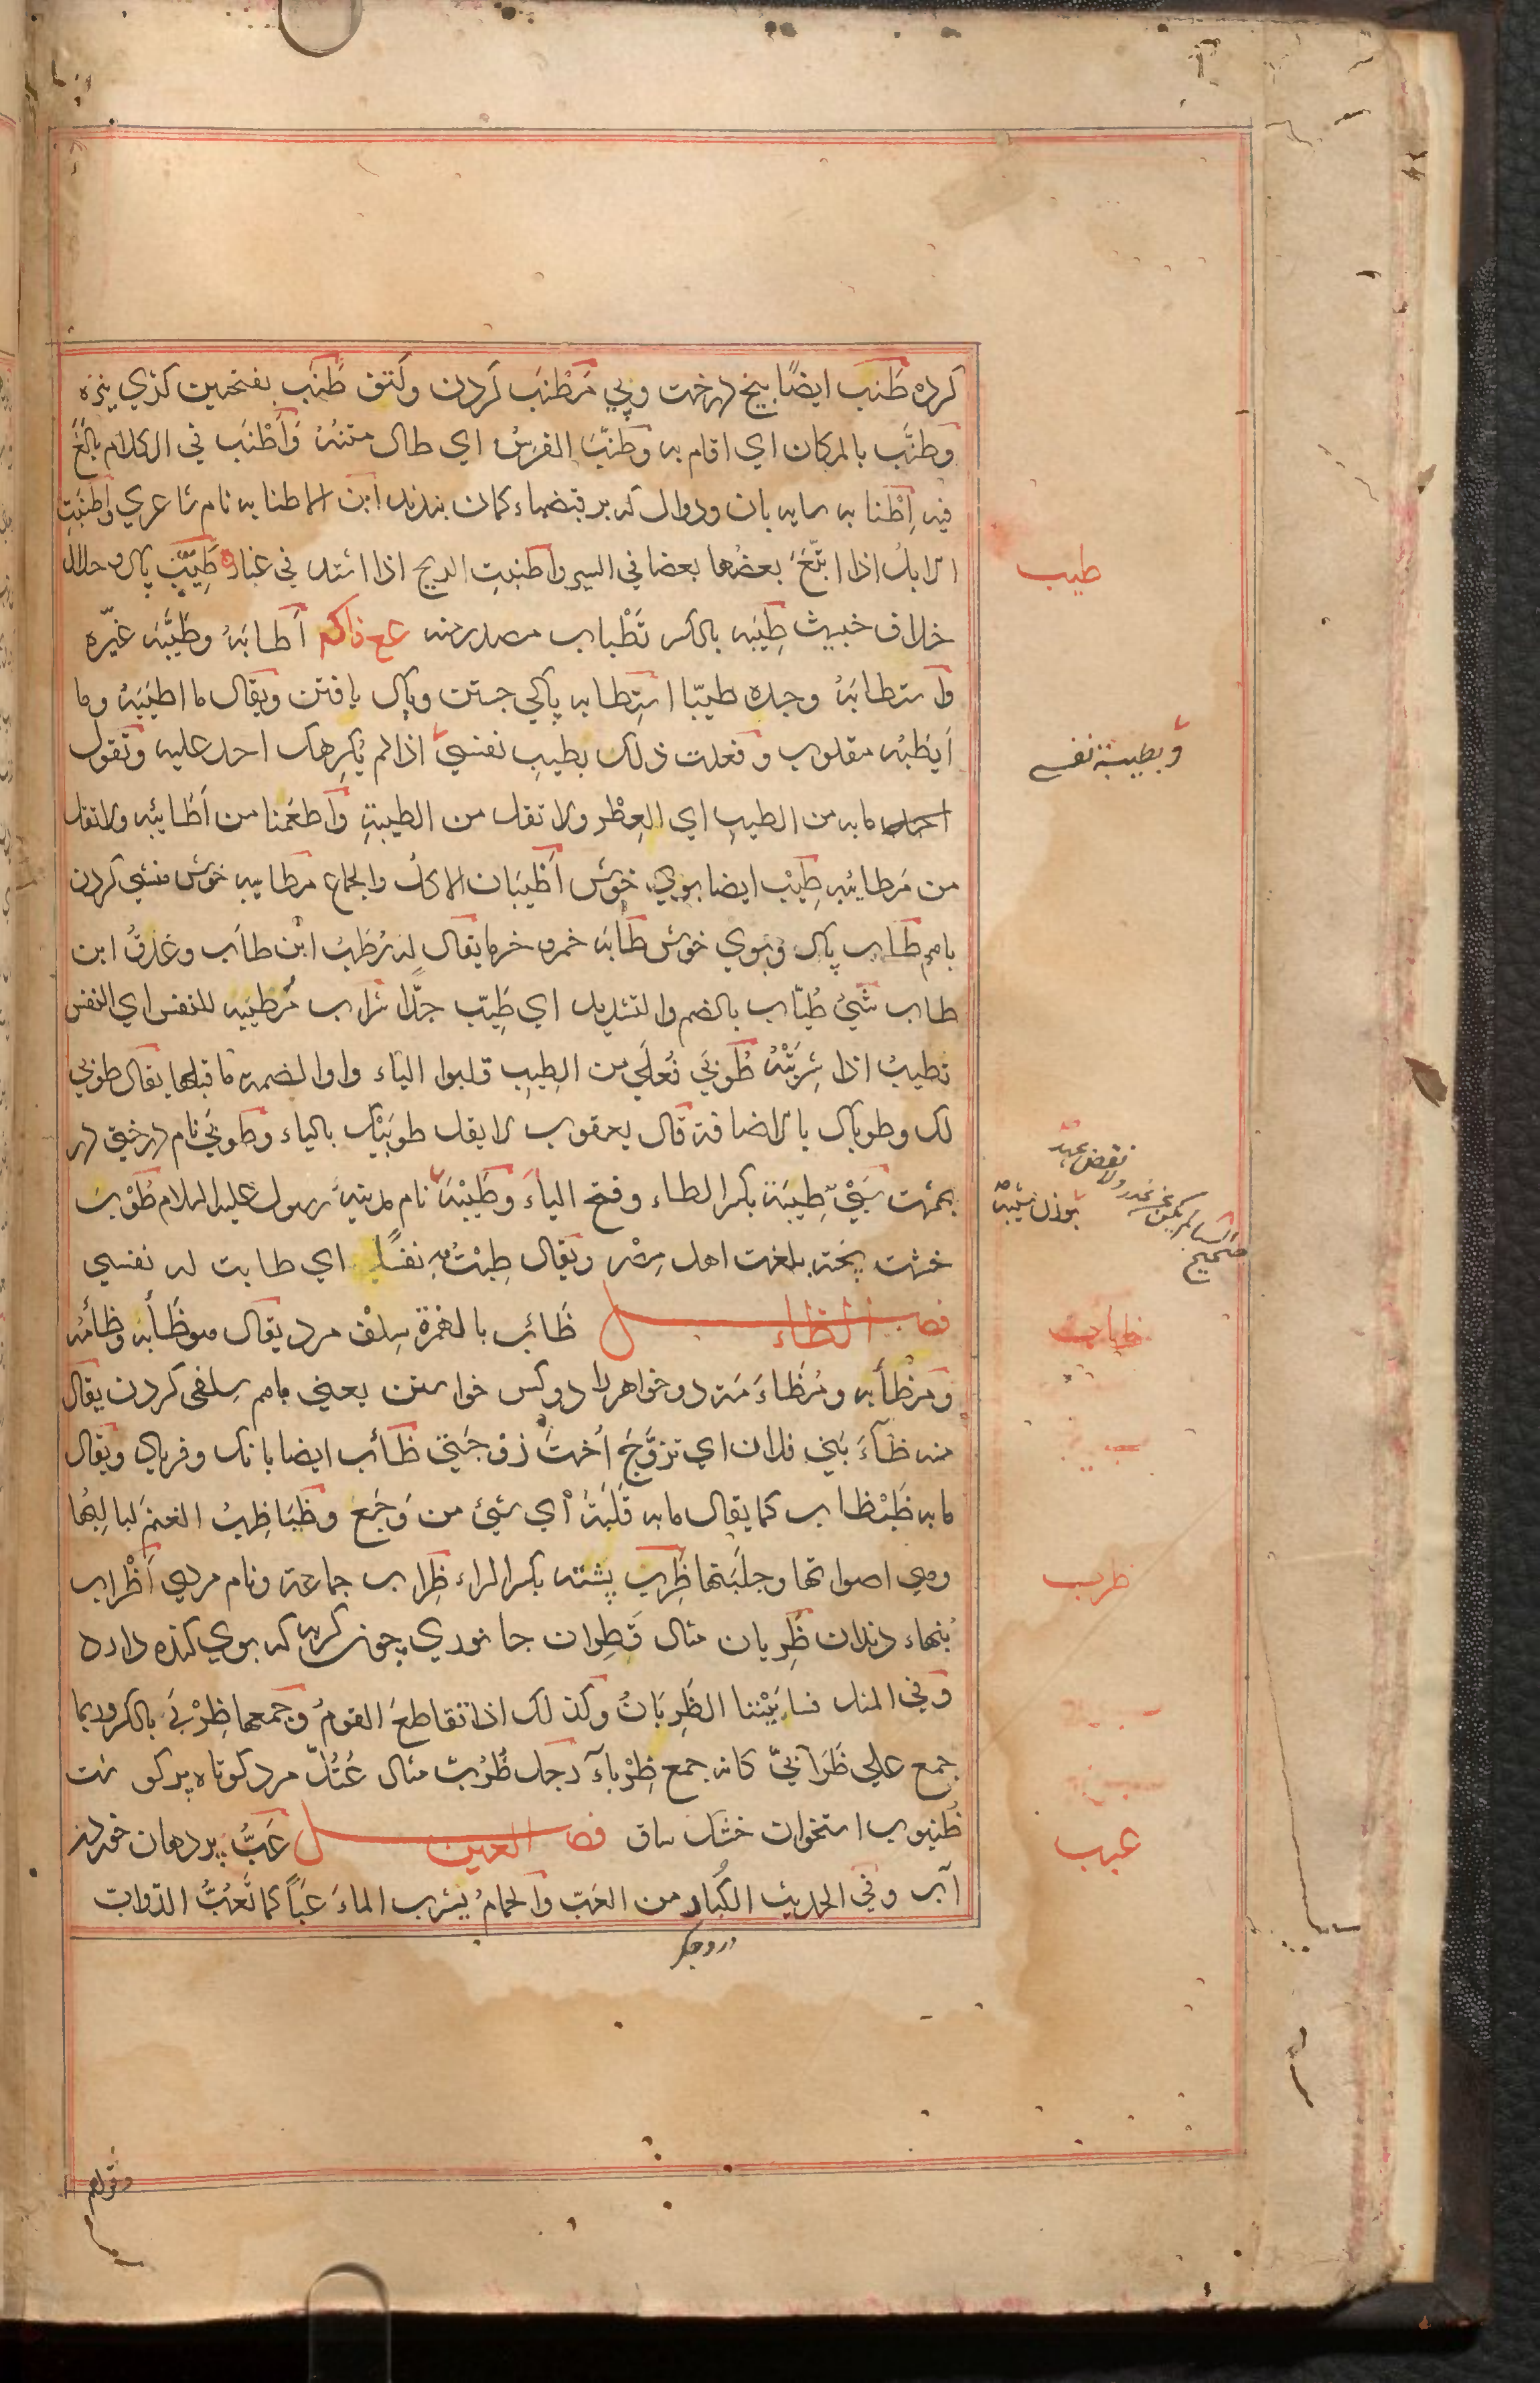 كرده طَنَب ايضًا بيخ درخت وپي مَرْطَنَب كردن وكتف طَنَب بفتحتين كذي نيزه
وطنَّب بالمكان اي اقام به وطَنِبَ الفرسُ اي طال متنهُ وَأَطْنَب في الكلام بالَغَ
فيه اِطْنابه سايه بان ودوال كه بر قبضهاء كمان بندند ابن الاطنابه نام شاعري واَطنَبَتِ
الابلُ اذا اتّبَعَ بعضُها بعضا في السير واطنبتِ الريح اذا اشتد في غبار طَيِّبٌ پاك وحلال
خلاف خبيث طِيبَه بالكسر تَطْياب مصدر منه ع ع ذاكم أطابَهُ وطَيَّبَه غيّره
واستطابَهُ وجده طيبًا استِطابه پاكي جستن وپاك يافتن ويقال ما اطيَبَهُ وما
اَيطَبَه مقلوب وفعلت ذلك بطيبِ نفسي اذا لم يُكرِهك احد عليه وتقول
ما به من الطيب اي العِطْر ولا تقل من الطيبةِ واَطعَمَنا من اَطَائبه ولا تقل
من مَطائبه طِيْب ايضا بوي خوش اَطْيَبان الاكل والجماع مطايبه خوش منشي كردن
باهم طاب پاك وبوي خوش طابَه خمر خرما يقال له رُطَبُ ابن طاب وعَذقُ ابن
طاب شَيْئٌ طُيّاب بالضم والتشديد اي طيّب جدًّا شراب مَطيَبَه للنفس اي النفس
تطيبُ اذا شَرِبَتْهُ طُوبَي فُعلَي من الطِيبِ قلبوا الياء واوا لضمة ما قبلها يقال طوبي
لك وطوباك بالاضافة قال يعقوب لا يقل طوبَيْك بالياء وطوبَي نام درختي در
بهشت سَبْيٌ طِيبَة بكسر الطاء وفتح الياءَ وطَيْبَة نام مدينهٔ رسول عليه السلام طُوْب
خشت پخته بلغت اهل مصر ويقال طِبْتُ به نفسًا اي طابت له نفسي
فصل الظاء ظَائب بالهمزة سِلف مرد يقال هو ظَأْبُه وظأمُه
ومظْأبه ومُظاءَمَه دو خواهر را دو كس خواستن يعني باهم سلفي كردن يقال
منه ظاءَ بَني فلان اي تزوَّجَ اُختَ زوجتي ظأب ايضا بانك وفرياد ويقال
ما به ظَبْظاب كما يقال ما به قَلَبَةٌ أي شيئ من وَجَعٍ وظَبَاظِبُ الغنمِ لبالِبُها
وهي اصواتها وجلَبَتها ظَرِبٌ پشته بكسر الراء ظِراب جماعة ونام مردي اَظْراب
بُنهاء دندان ظَرِبان مثال قَطِران جانوري چون گربه كه بوي كنده دارد
وفي المثل فسا بَيْننا الظَرِبانُ وكذلك اذا تقاطعَ القومُ وجمعها ظِرْبَي بالكسر وربما
جمع علي ظَرابيَّ كانه جمع ظِرْباء رجل ظُرُبٌّ مثال عُتُلّ مرد كوتاه پر گوشت
ظُنبوب استخوان خشك ساق فصل العين عَبُّ پر دهان خوردن
آب وفي الحديث الكُباد من العَبّ والحمامُ يشرب الماءَ عَبّاً كما تَعُبُّ الدوابّ
درد جگر
طيب
وبطيبة نفسي
بوزن شيبة
صحيح السباء لم يكن عن غدر ولا نقض عهد
ظاب
ظرب
عبب
وقولهم